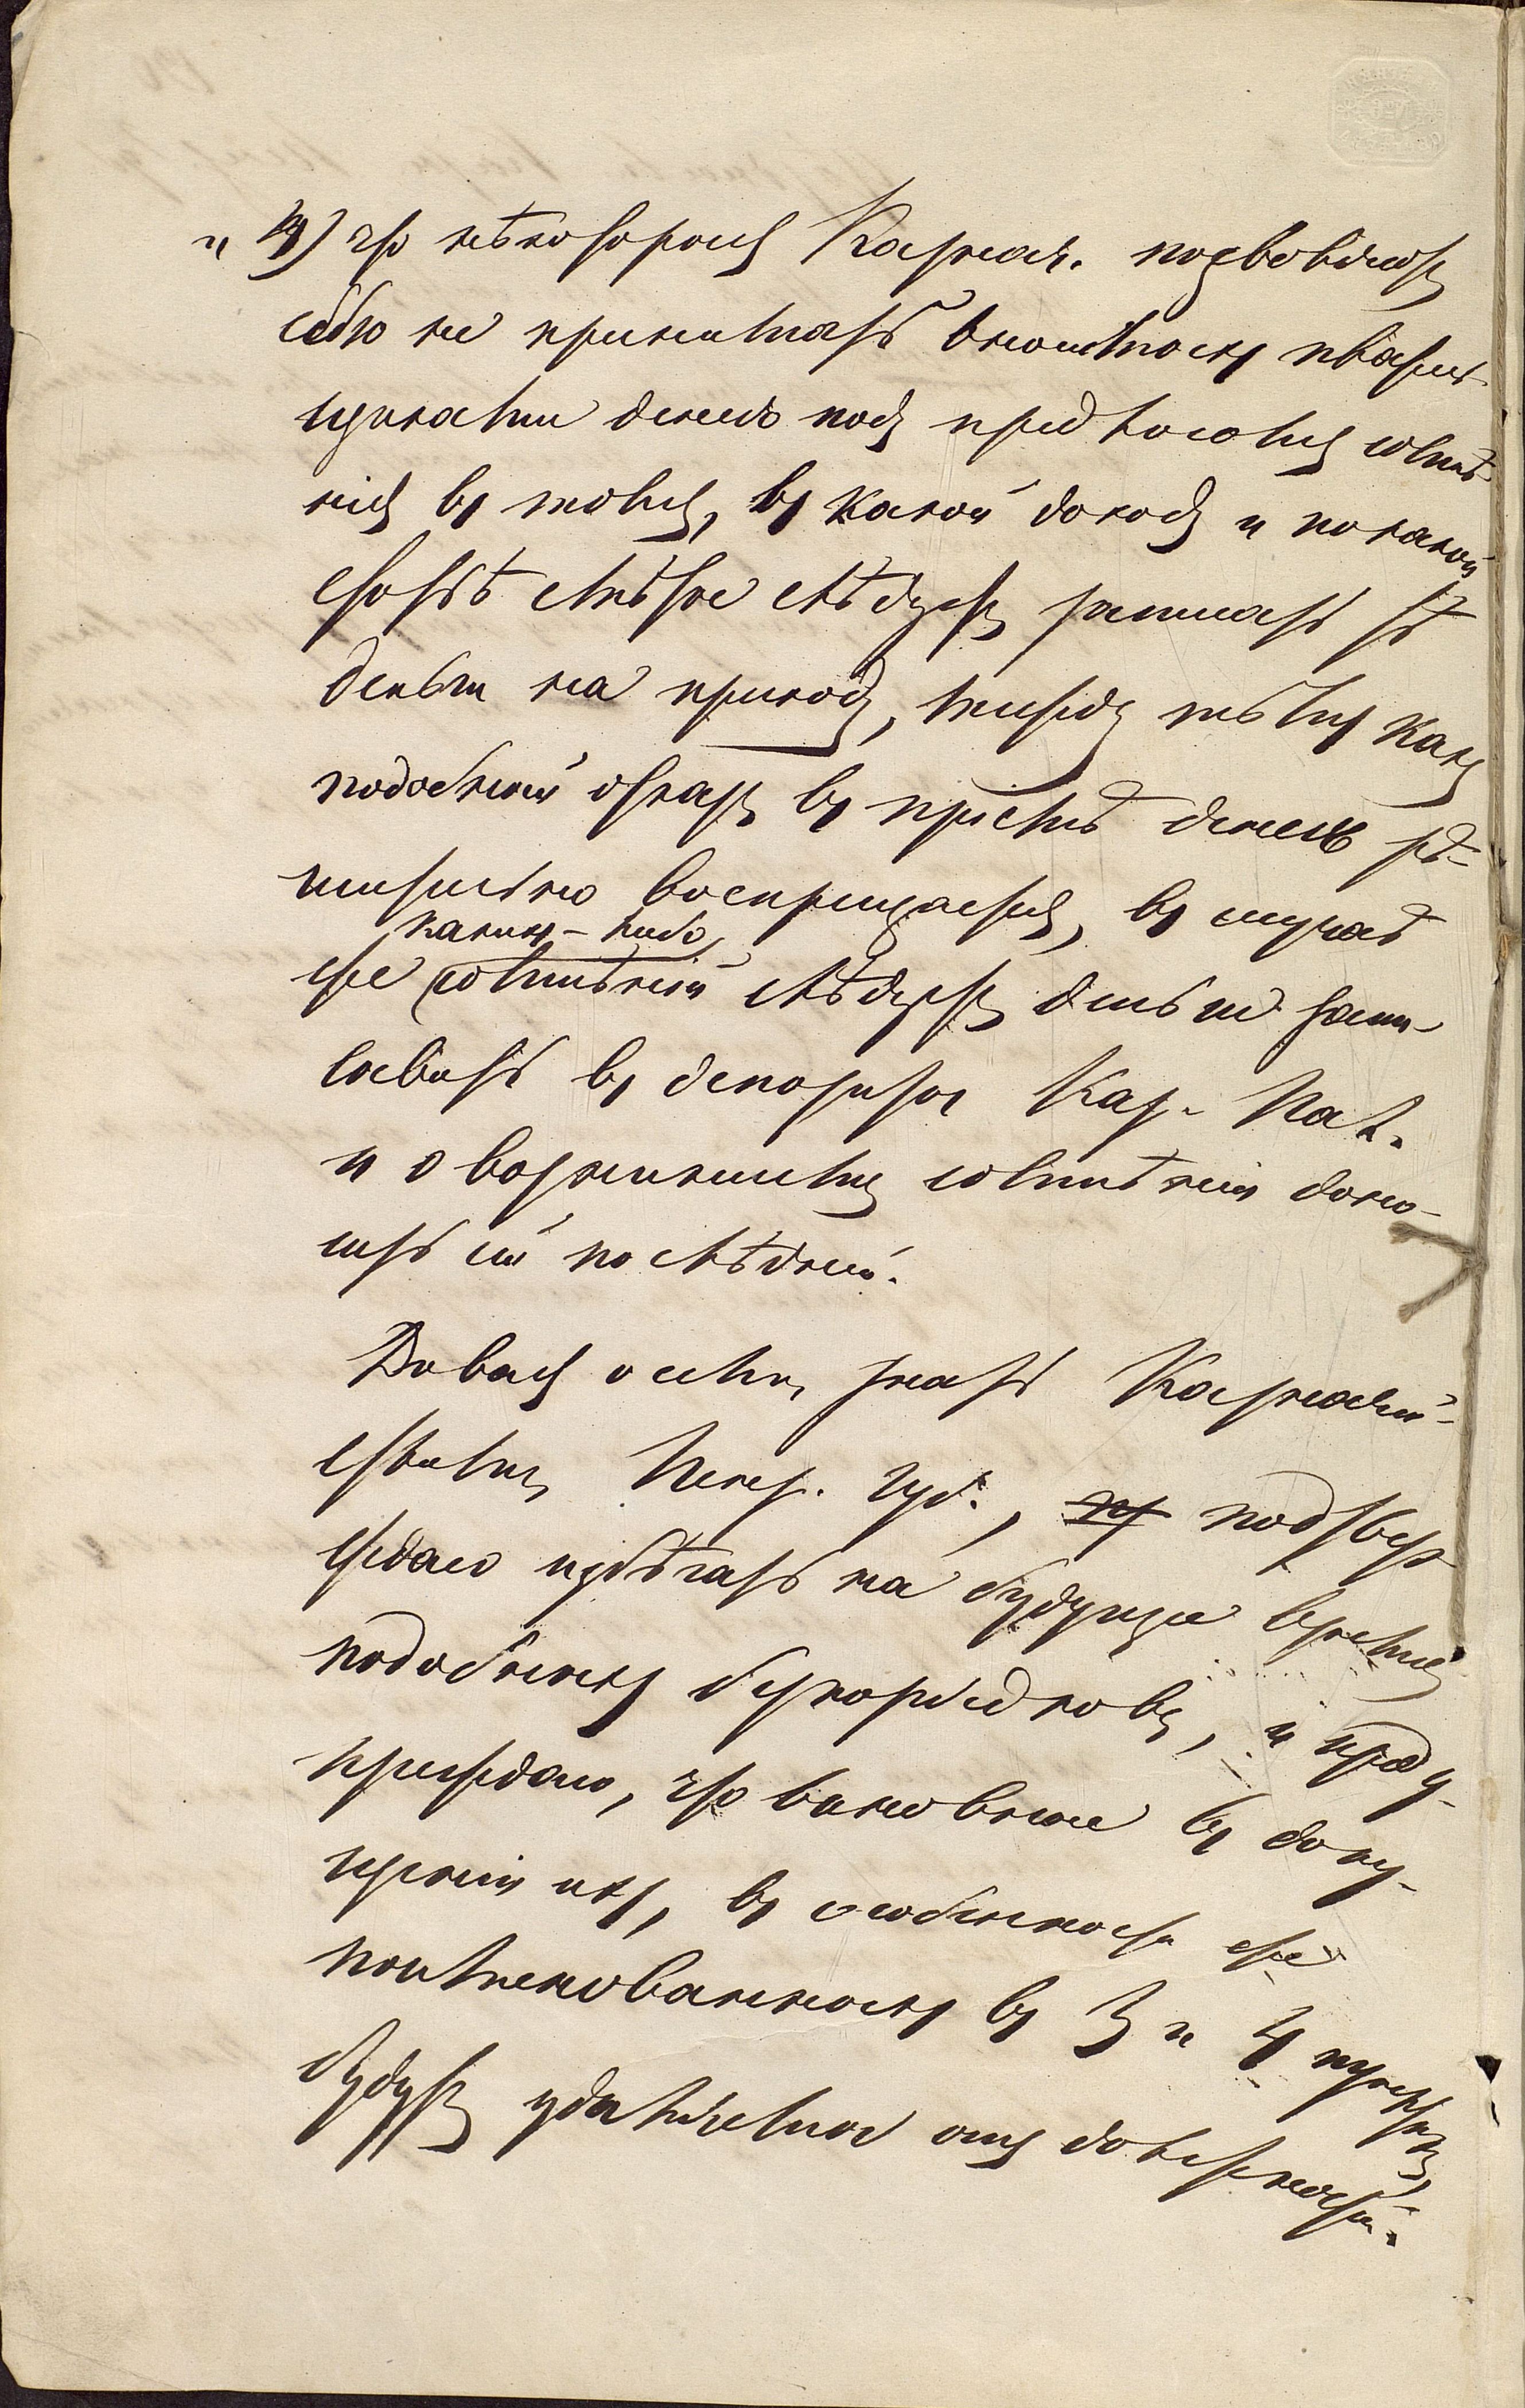 и 4) что нѣкоторыя Казнач. позволяютъ
себѣ не принимать вносимыхъ квартир-
щиками денегъ подъ предлогомъ сомнѣ-
нія въ томъ, въ какой доходъ и по какой
статьѣ смѣты слѣдуетъ записать тѣ
деньги на приходъ, тогда какъ
подобный отказъ въ пріемѣ денегъ рѣ-
шительно воспрещается, въ случаѣ
же какихъ-либо сомнѣній слѣдуетъ деньги запи-
сывать въ депозиты Каз. Пал.
и о возникшемъ сомнѣніи доно-
сить ей послѣдней.
Давая о семъ знать Казначей-
ствамъ Пенз. губ., подтвер-
ждаю избѣгать на будущее время
подобныхъ безпорядковъ, и преду-
преждаю, что виновные въ допу-
щеніи ихъ, въ особенности же
поименованныхъ въ 3 и 4 пунктахъ,
будутъ удаляемы отъ должностей.